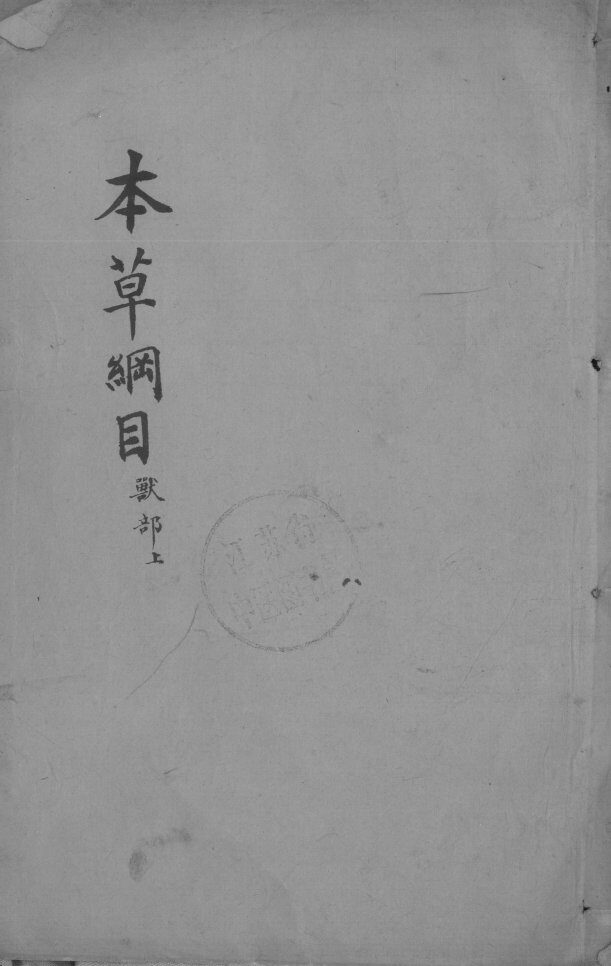 本草綱目
獸部上